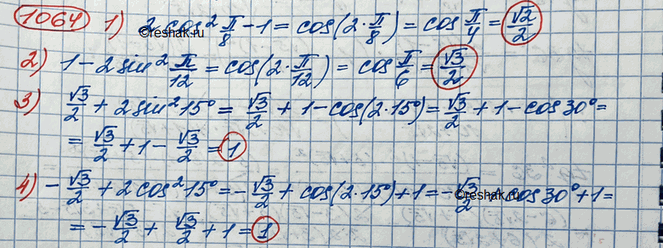 1064 1) 2cos² π/8 − 1 = cos(2·π/8) = cos π/4 = √2/2
2) 1 − 2sin² π/12 = cos(2·π/12) = cos π/6 = √3/2
3) √3/2 + 2sin²15° = √3/2 + 1 − cos(2·15°) = √3/2 + 1 − cos30° =
= √3/2 + 1 − √3/2 = 1
4) −√3/2 + 2cos²15° = −√3/2 + cos(2·15°) + 1 = −√3/2 + cos30° + 1 =
= −√3/2 + √3/2 + 1 = 1